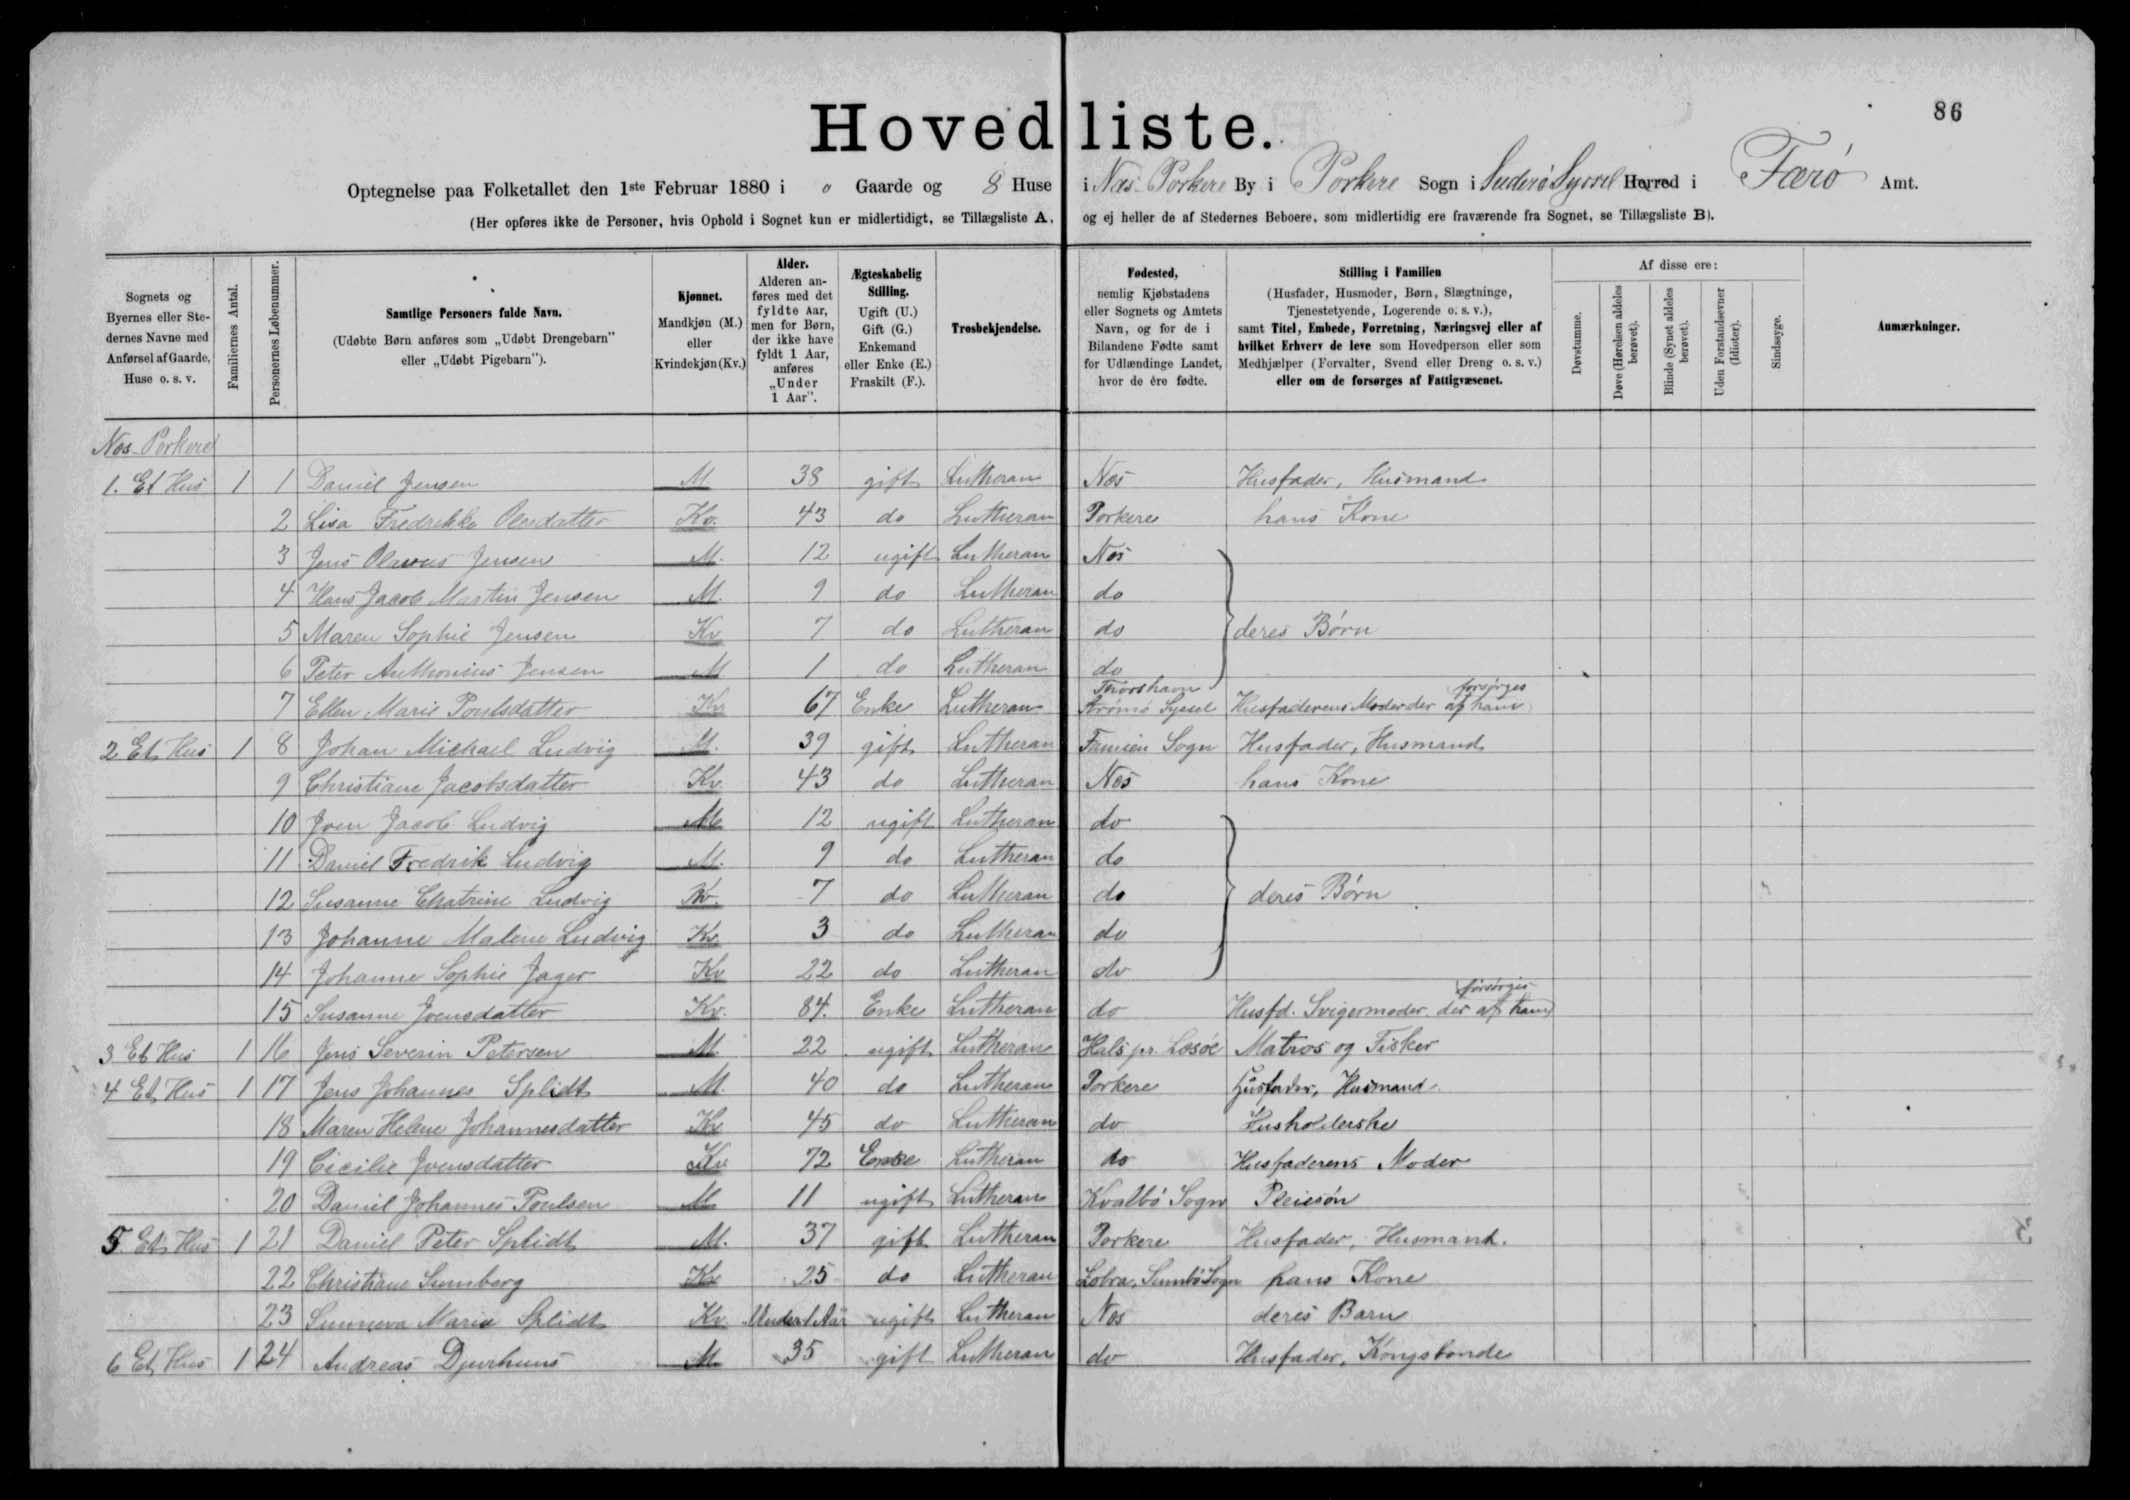 86
Hovedliste.
Optegnelse paa Folketallet den 1ste Februar 1880 i o Gaarde og 8 Huse i Næs Porkere By i Porkere Sogn i Suderø Syssel Herred i Færø Amt.
(Her opføres ikke de Personer, hvis Ophold i Sognet kun er midlertidigt, se Tillægsliste A, og ej heller de af Stedernes Beboere, som midlertidig ere fraværende fra Sognet, se Tillægsliste B).
Sognets og Byernes eller Stedernes Navne med Anførsel af Gaarde, Huse o. s. v.
Familiernes Antal.
Personernes Løbenummer.
Samtlige Personers fulde Navn.
(Udøbte Børn anføres som „Udøbt Drengebarn" eller „Udøbt Pigebarn").
Kjønnet.
Mandkjøn (M.) eller Kvindekjøn (Kv.)
Alder.
Alderen anføres med det fyldte Aar, men for Børn, der ikke have fyldt 1 Aar, anføres „Under 1 Aar".
Ægteskabelig Stilling.
Ugift (U.) Gift (G.) Enkemand eller Enke (E.) Fraskilt (F.).
Trosbekjendelse.
Fødested,
nemlig Kjøbstadens eller Sognets og Amtets Navn, og for de i Bilandene Fødte samt for Udlændinge Landet, hvor de ere fødte.
Stilling i Familien
(Husfader, Husmoder, Børn, Slægtninge, Tjenestetyende, Logerende o. s. v.),
samt Titel, Embede, Forretning, Næringsvej eller af hvilket Erhverv de leve som Hovedperson eller som Medhjælper (Forvalter, Svend eller Dreng o. s. v.) eller om de forsørges af Fattigvæsenet.
Af disse ere:
Døvstumme.
Døve (Hørelsen aldeles berøvet).
Blinde (Synet aldeles berøvet).
Uden Forstandsevner (Idioter).
Sindssyge.
Anmærkninger.
Nøs Porkere
1. Et Hus 1 1 Daniel Jensen M 38 gift Lutheran Næs Husfader, Husmand
2 Lisa Fredrikke Olesdatter Kv. 43 do Lutheran Porkere hans Kone
3 Jens Olavus Jensen M. 12 ugift Lutheran Nøs
4 Hans Jacob Martin Jensen M. 9 do Lutheran do
5 Maren Sophie Jensen Kv 7 do Lutheran do deres Børn
6 Peter Anthonius Jensen M 1 do Lutheran do
7 Ellen Marie Poulsdatter Kv 67 Enke Lutheran Thorshavn Strømø Syssel Husfaderens Moder der forsørges af ham
2 Et Hus 1 8 Johan Michael Ludvig M. 39 gift Lutheran Famien Sogn Husfader, Husmand
9 Christiane Jacobsdatter Kv. 43 do Lutheran Nøs hans Kone
10 Joen Jacob Ludvig M 12 ugift Lutheran do
11 Daniel Fredrik Ludvig M. 9 do Lutheran do
12 Susanne Chatrine Ludvig Kv. 7 do Lutheran do deres Børn
13 Johanne Malene Ludvig Kv. 3 do Lutheran do
14 Johanne Sophie Jager Kv 22 do Lutheran do
15 Susanne Joensdatter Kv. 84. Enke Lutheran do Husfd. Svigermoder der forsørges af ham
3 Et Hus 1 16 Jens Severin Petersen M. 22 ugift Lutheran Hals pr. Læsøe Matros og Fisker
4 Et Hus 1 17 Jens Johannes Splidt M. 40 do Lutheran Porkere Husfader, Husmand
18 Maren Helene Johannesdatter Kv 45 do Lutheran do Husholderske
19 Cicilie Joensdatter Kv 72 Enke Lutheran do Husfaderens Moder
20 Daniel Johannes Poulsen M 11 ugift Lutheran Kvalbø Sogn Pleiesøn
5 Et Hus 1 21 Daniel Peter Splidt M. 37 gift Lutheran Porkere Husfader, Husmand.
22 Christiane Sumberg Kv 25 do Lutheran Lobra, Sumbø Sogn hans Kone
23 Sunneva Marie Splidt Kv. Under 1 Aar ugift Lutheran Nøs deres Barn
6 Et Hus 1 24 Andreas Djurhuus M. 35 gift Lutheran do Husfader, Kongsbonde